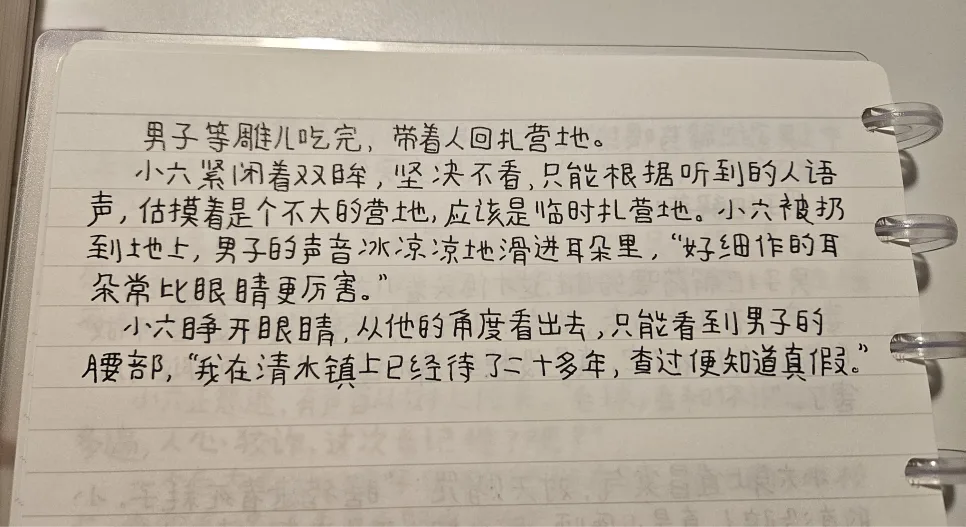 男子等雕儿吃完，带着人回扎营地。
小六紧闭着双眸，坚决不看，只能根据听到的人语
声，估摸着是个不大的营地，应该是临时扎营地。小六被扔
到地上，男子的声音冰凉凉地滑进耳朵里，“好细作的耳
朵常比眼睛更厉害。”
小六睁开眼睛，从他的角度看出去，只能看到男子的
腰部，“我在清水镇上已经待了二十多年，查过便知道真假。”